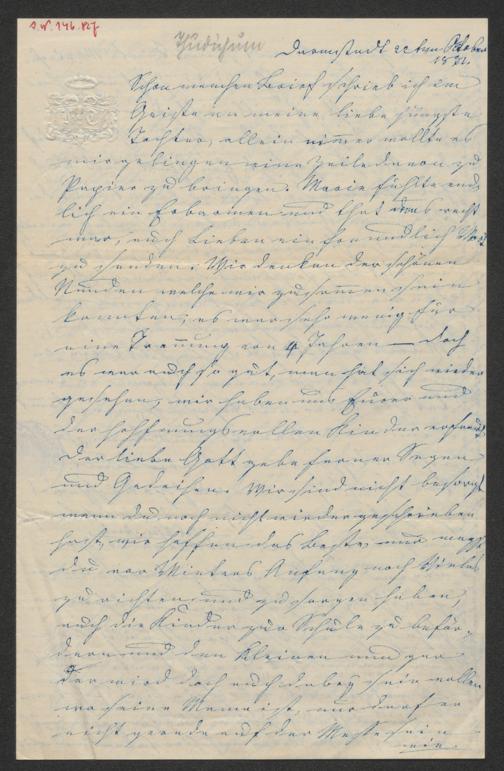 A.W. 146.187
Thudichum
Darmstadt 22ten October
1871.
Schon manchen Brief schrieb ich im
Geiste an meine liebe jüngste
Tochter, allein nimmer wollte es
mir gelingen eine Zeile davon zu
Papier zu bringen. Marie fühlte end-
lich ein Erbarmen und that was recht
war, euch Lieben ein freundlich
zu senden. Wir denken der schönen
Stunden welche wir zusammen sein
konnten, es war sehr wenig für
eine Trennung von 4 Jahren — doch
es war auch so gut, man hat sich wieder
gesehen, wir haben uns Eurer und
der hoffnungsvollen Kinder erfreut
der liebe Gott gebe ferner Segen
und Gedeihen. Wir sind nicht besorgt
wenn du noch nicht wieder geschrieben
hast, wir hoffen das Beste und
du vor Winters Anfang noch Vieles
zu richten und zu sorgen haben,
auch die Kinder zur Schule zu beför-
dern und den Kleinen
der wird doch auch dabey sein wollen
wo seine Mama ist, nur darf er
nicht gerade auf der Messe sein